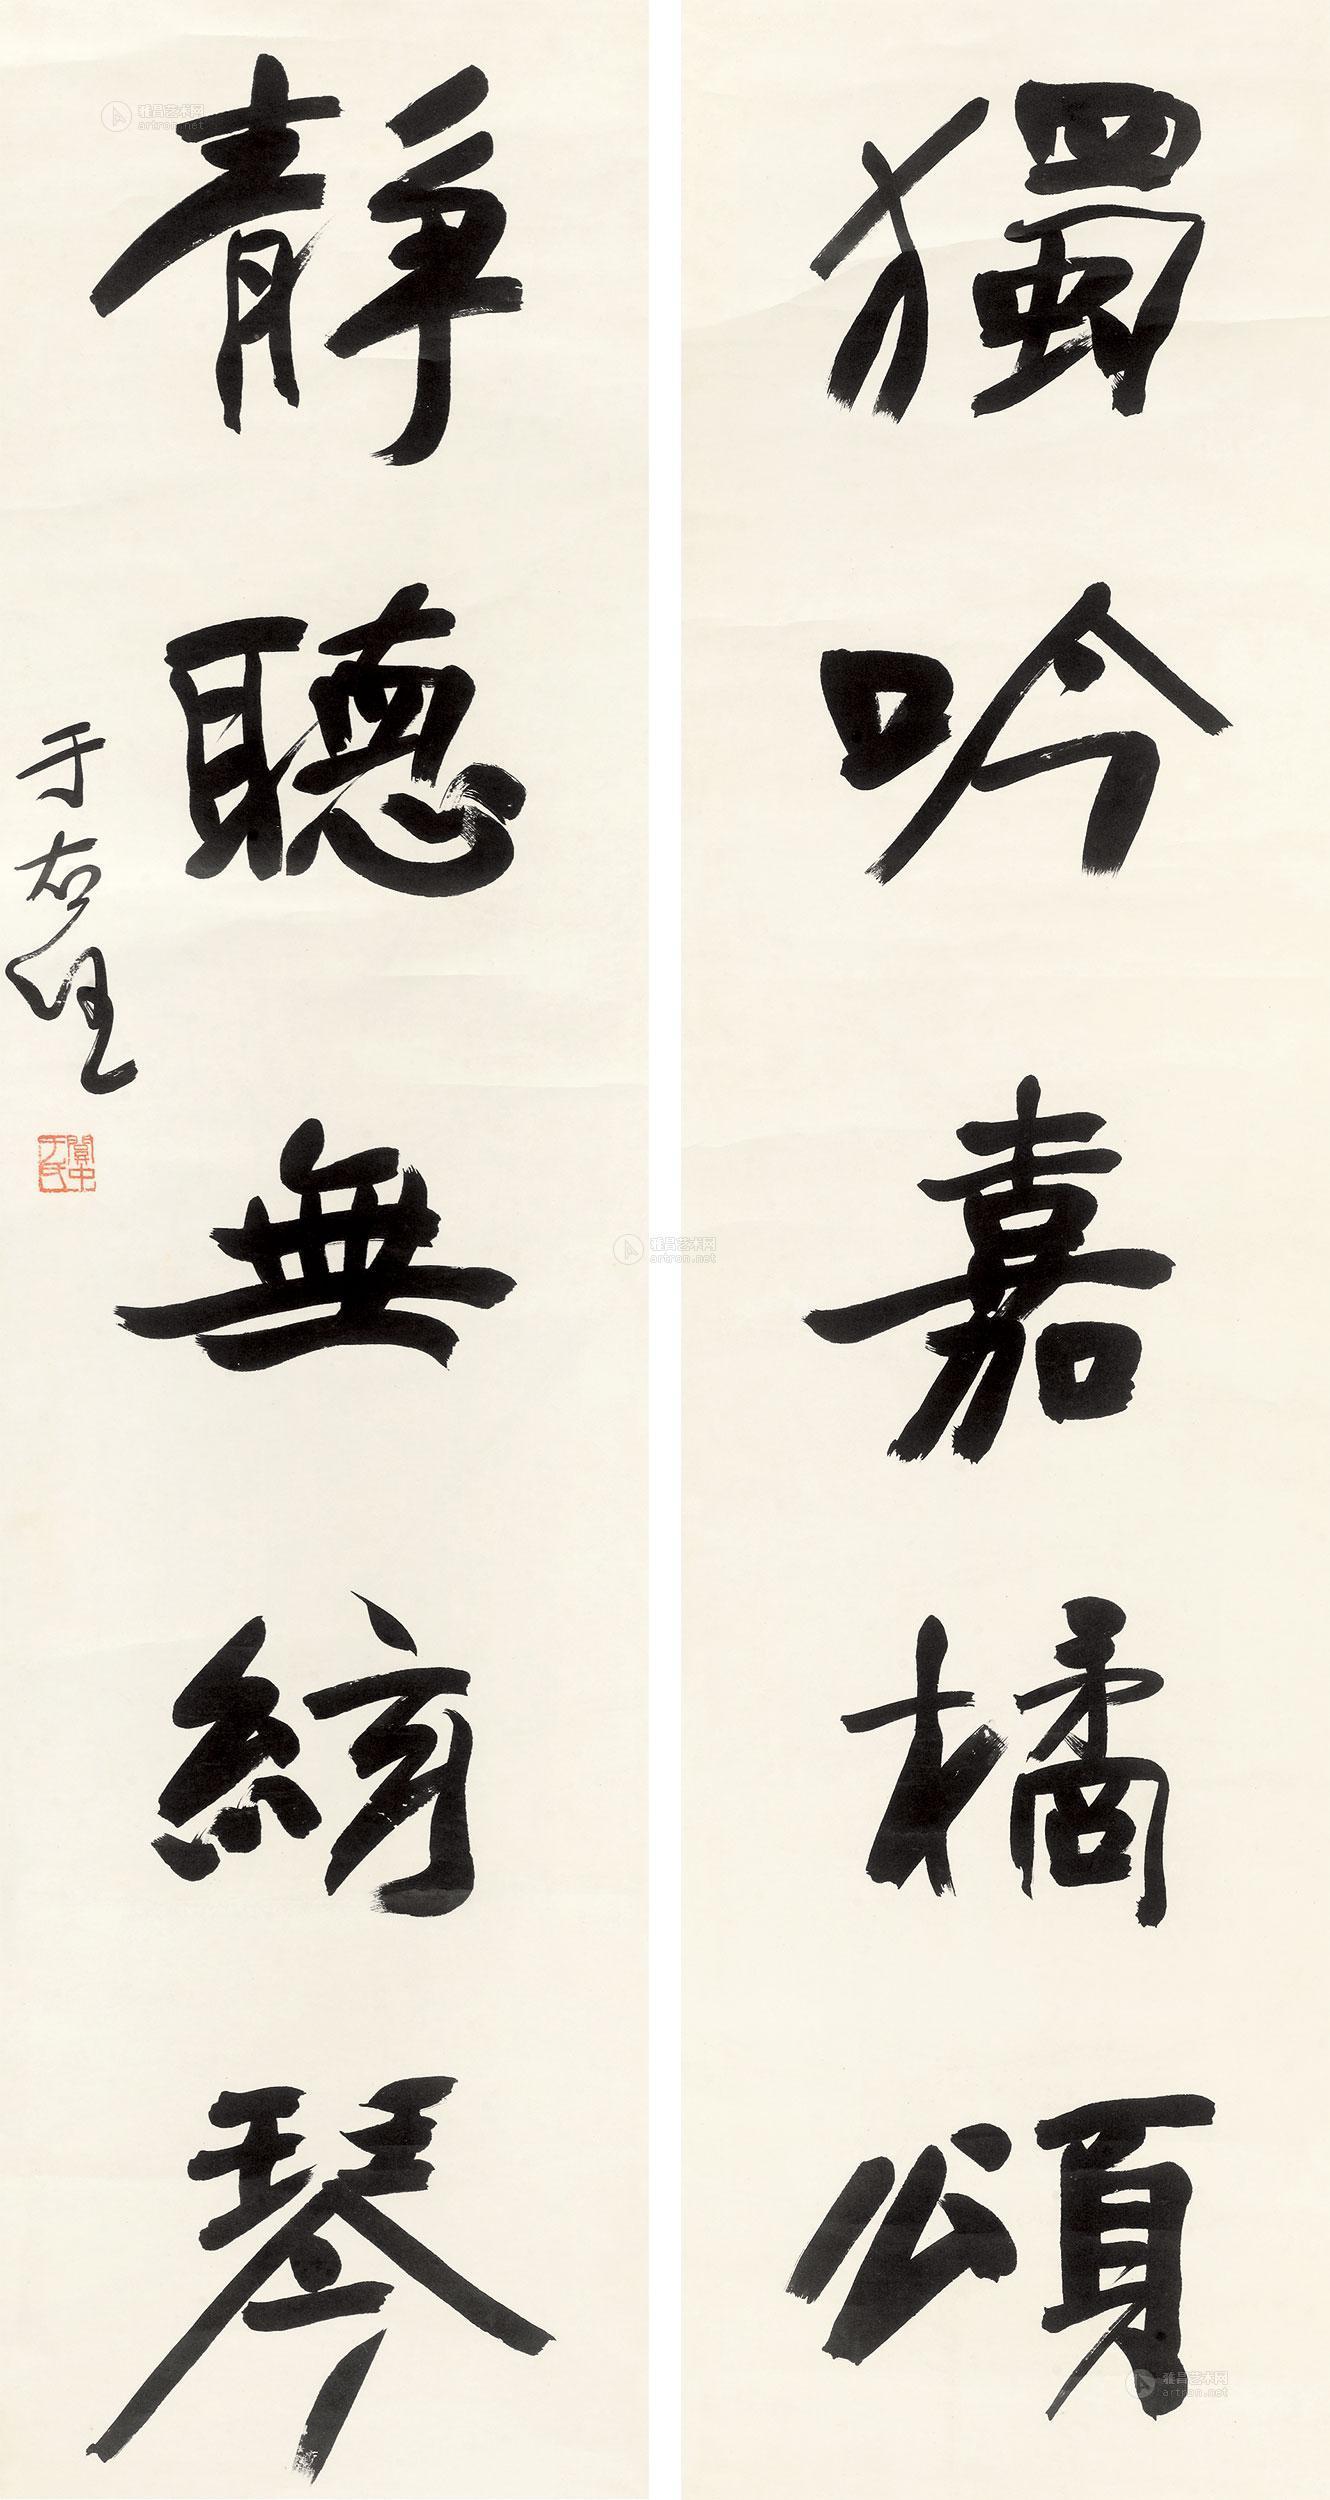 獨吟嘉橘頌
靜聽無絃琴
于右任
關中于氏
雅昌艺术网
artron.net
雅昌艺术网
artron.net
雅昌艺术网
artron.net